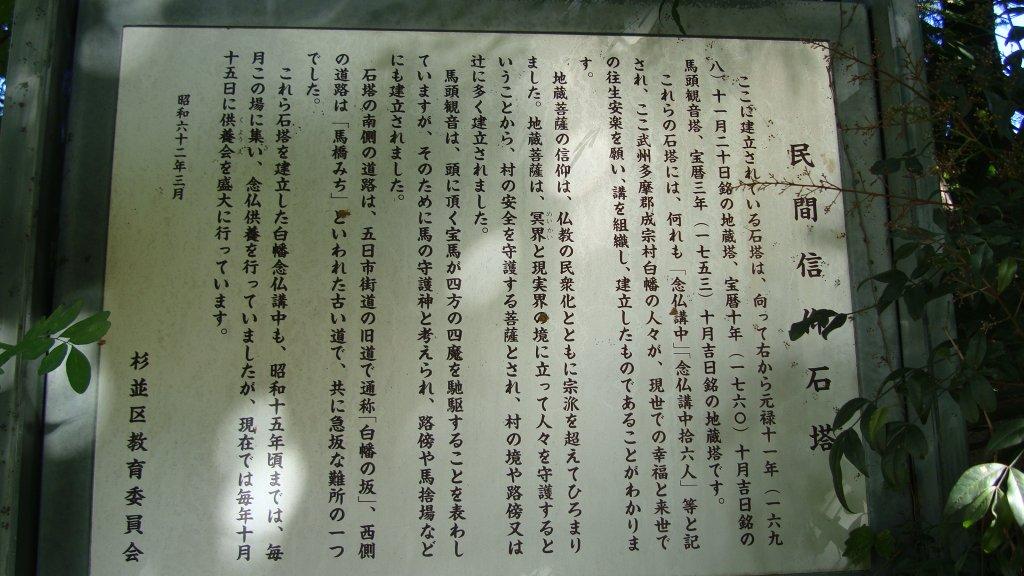 民間信仰石塔
ここに建立されている石塔は、向って右から元禄十一年（一六九
八、十一月二十日銘の地蔵塔、宝暦十年（一七六〇）十月吉日銘の
馬頭観音塔、宝暦三年（一七五三）十月吉日銘の地蔵塔です。
これらの石塔には、何れも「念仏講中」「念仏講中拾六人」等と記
され、ここ武州多摩郡成宗村白幡の人々が、現世での幸福と来世で
の往生安楽を願い、講を組織し、建立したものであることがわかりま
す。
地蔵菩薩の信仰は、仏教の民衆化とともに宗派を超えてひろまり
ました。地蔵菩薩は、冥界と現実界の境に立って人々を守護すると
いうことから、村の安全を守護する菩薩とされ、村の境や路傍又は
辻に多く建立されました。
馬頭観音は、頭に頂く宝馬が四方の四魔を馳駆することを表わし
ていますが、そのために馬の守護神と考えられ、路傍や馬捨場など
にも建立されました。
石塔の南側の道路は、五日市街道の旧道で通称「白幡の坂」、西側
の道路は「馬橋みち」といわれた古い道で、共に急坂な難所の一つ
でした。
これら石塔を建立した白幡念仏講中も、昭和十五年頃までは、毎
月この場に集い、念仏供養を行っていましたが、現在では毎年十月
十五日に供養会を盛大に行っています。
昭和六十二年三月
杉並区教育委員会